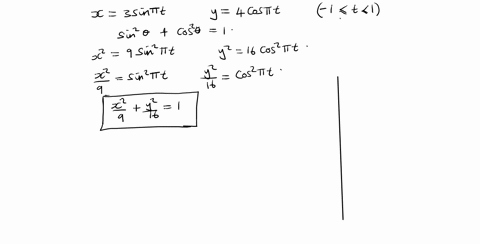 x = 3sinπt    y = 4cosπt    (-1 ≤ t ≤ 1)
sin²θ + cos²θ = 1.
x² = 9 sin²πt    y² = 16 cos²πt.
x²/9 = sin²πt    y²/16 = cos²πt.
x²/9 + y²/16 = 1